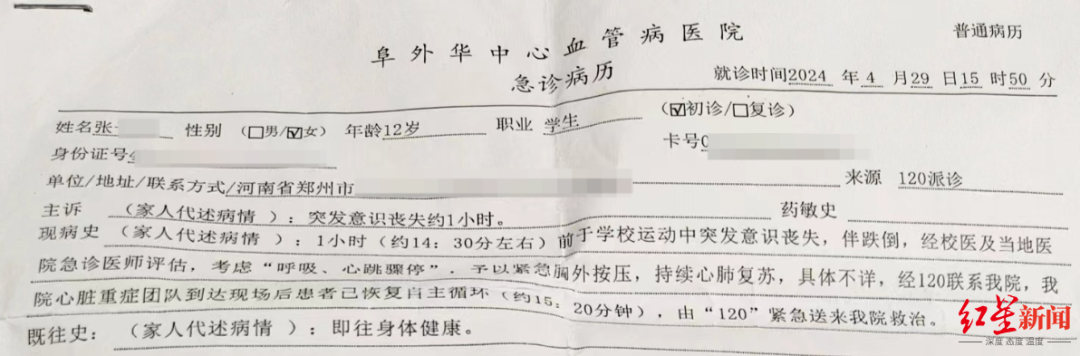 阜外华中心血管病医院
普通病历
急诊病历
就诊时间2024 年 4 月 29 日 15 时 50 分
姓名张 性别 (□男/☑女) 年龄12岁 职业 学生 (☑初诊/□复诊)
身份证号 卡号
单位/地址/联系方式/河南省郑州市 来源 120派诊
主诉 (家人代述病情 ): 突发意识丧失约1小时。 药敏史
现病史 (家人代述病情 ): 1小时 (约14: 30分左右) 前于学校运动中突发意识丧失, 伴跌倒, 经校医及当地医
院急诊医师评估, 考虑 “呼吸、心跳骤停” , 予以紧急胸外按压, 持续心肺复苏, 具体不详, 经120联系我院, 我
院心脏重症团队到达现场后患者已恢复自主循环 (约15: 20分钟) , 由 “120” 紧急送来我院救治。
既往史: (家人代述病情 ): 即往身体健康。
红星新闻
深度 态度 温度